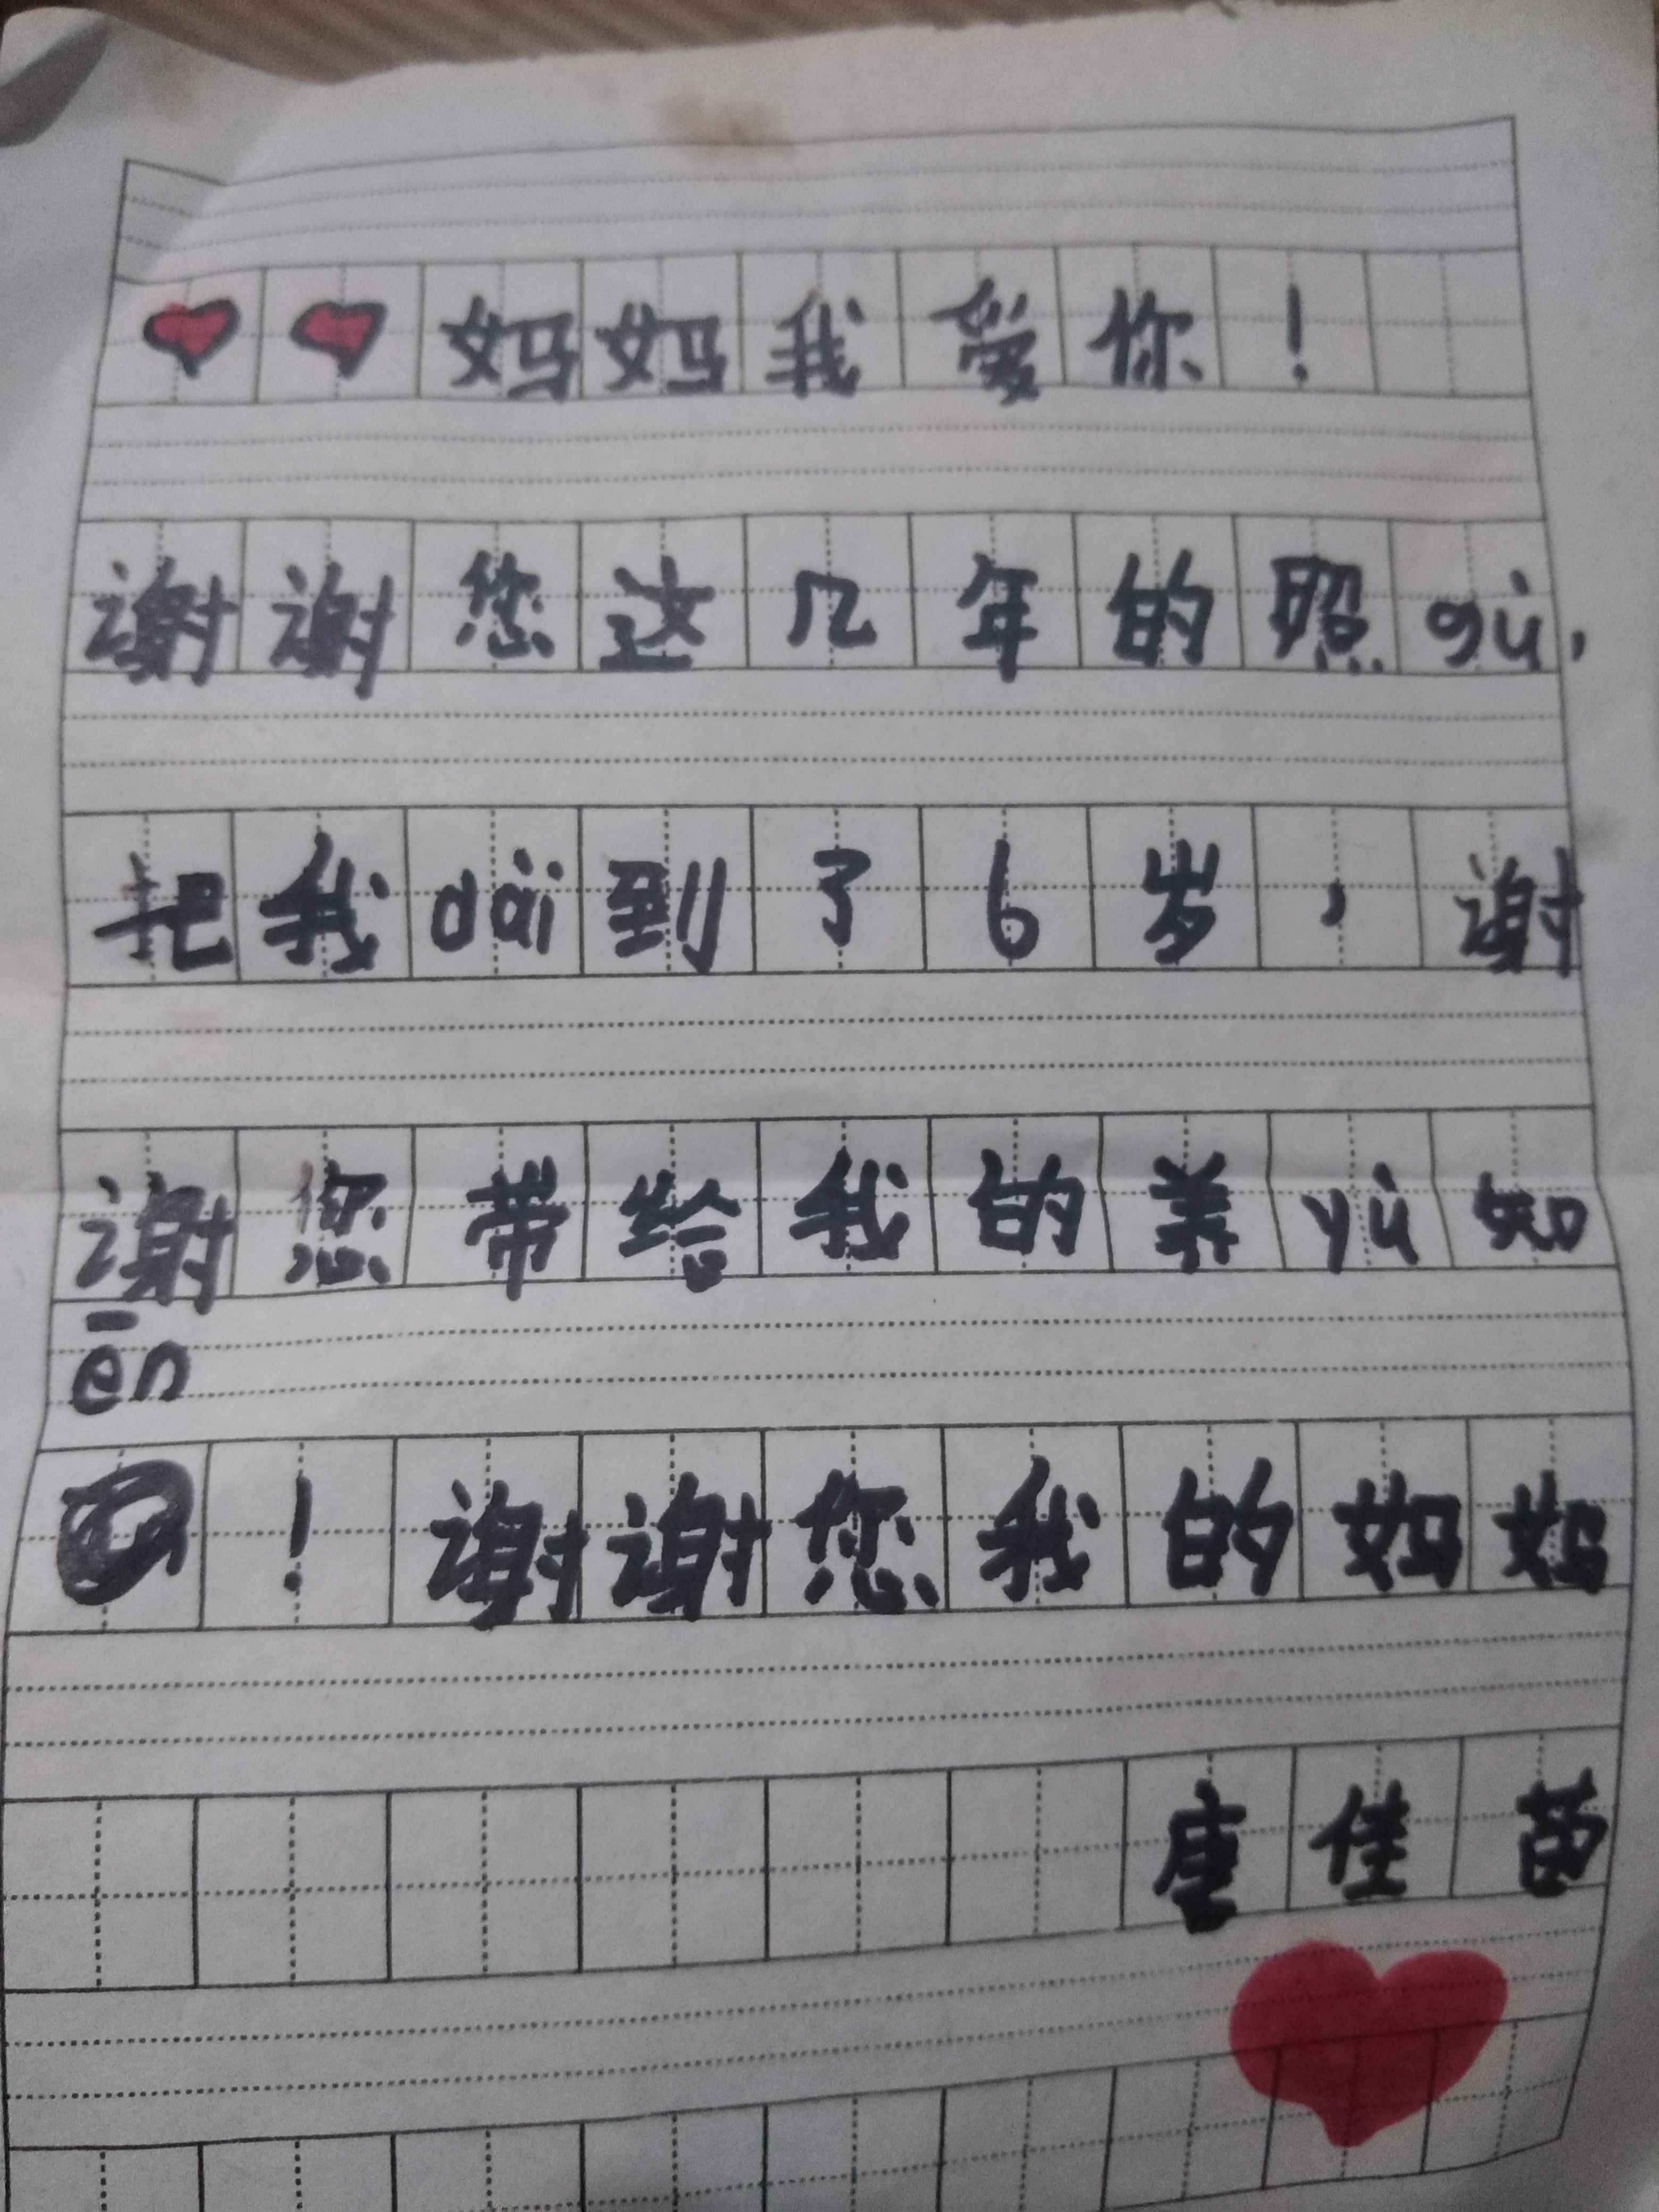 妈妈我爱你!
谢谢您这几年的照gù,
把我dài到了6岁,谢
谢您带给我的养yù知
ēn
!谢谢您我的妈妈
唐佳苗